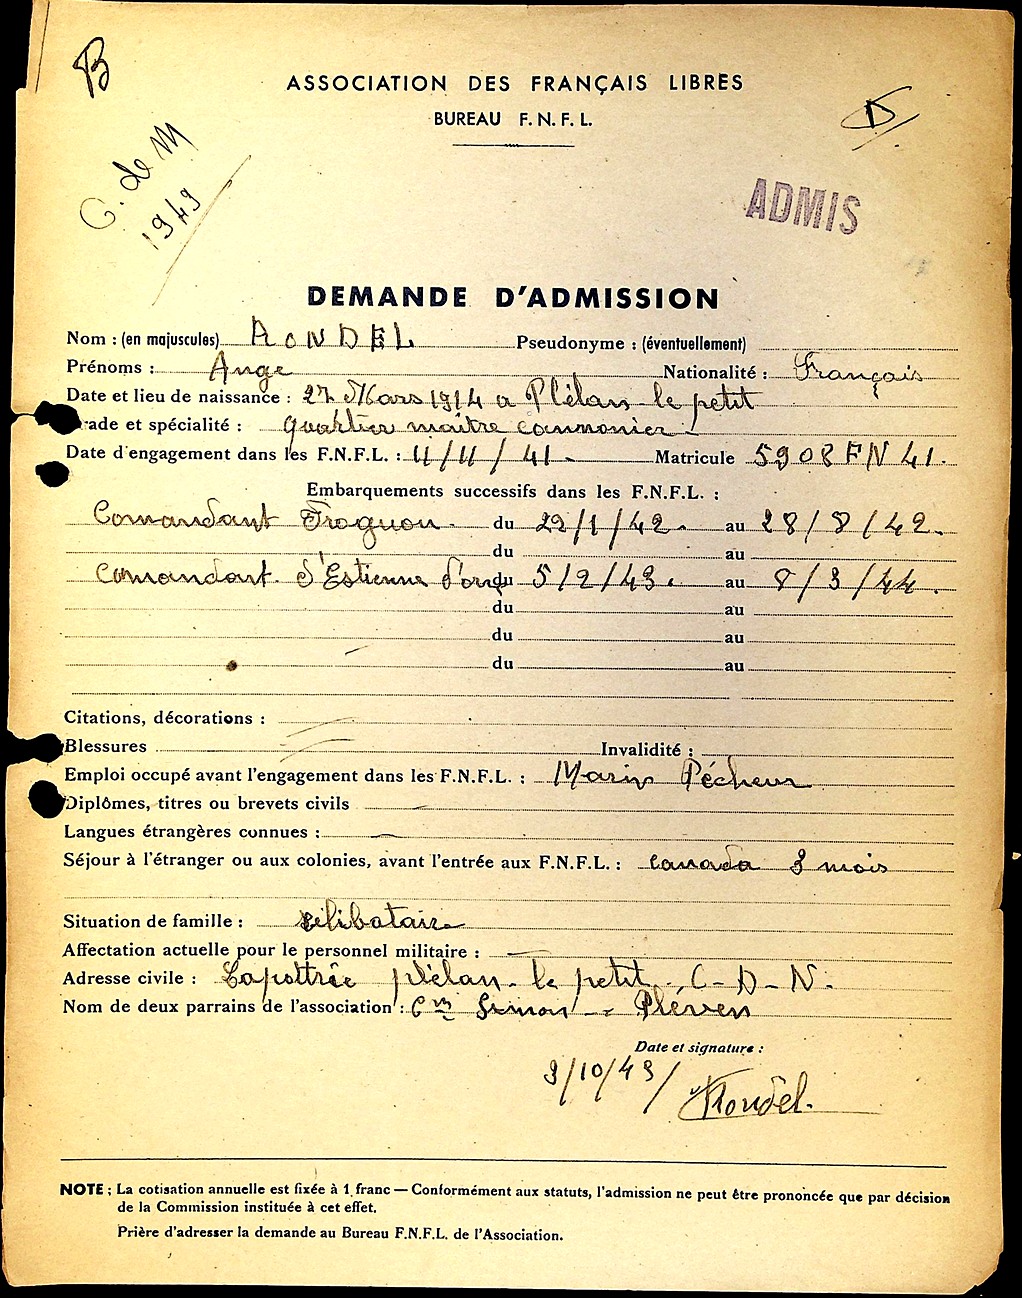 B
ASSOCIATION DES FRANÇAIS LIBRES
BUREAU F. N. F. L.
D
C. de M
1943
ADMIS
DEMANDE D'ADMISSION
Nom : (en majuscules) RONDEL Pseudonyme : (éventuellement)
Prénoms : Ange Nationalité : Français
Date et lieu de naissance : 27 Mars 1914 a Plélan le petit
rade et spécialité : quartier maitre cannonier
Date d'engagement dans les F.N.F.L. : 11/11/41. Matricule 5908 FN 41.
Embarquements successifs dans les F.N.F.L. :
Comandant Droguou. du 22/1/42. au 28/8/42.
du au
Comandant d'Estienne d'orv du 5/2/43. au 8/3/44.
du au
du au
du au
Citations, décorations :
Blessures Invalidité :
Emploi occupé avant l'engagement dans les F.N.F.L. : Marin Pécheur
Diplômes, titres ou brevets civils
Langues étrangères connues :
Séjour à l'étranger ou aux colonies, avant l'entrée aux F.N.F.L. : Canada 3 mois
Situation de famille : célibataire
Affectation actuelle pour le personnel militaire :
Adresse civile : plélan-le petit - C-D-N.
Nom de deux parrains de l'association : Simon - Pléven
Date et signature :
3/10/43/ Rondel.
NOTE : La cotisation annuelle est fixée à 1 franc — Conformément aux statuts, l'admission ne peut être prononcée que par décision
de la Commission instituée à cet effet.
Prière d'adresser la demande au Bureau F.N.F.L. de l'Association.